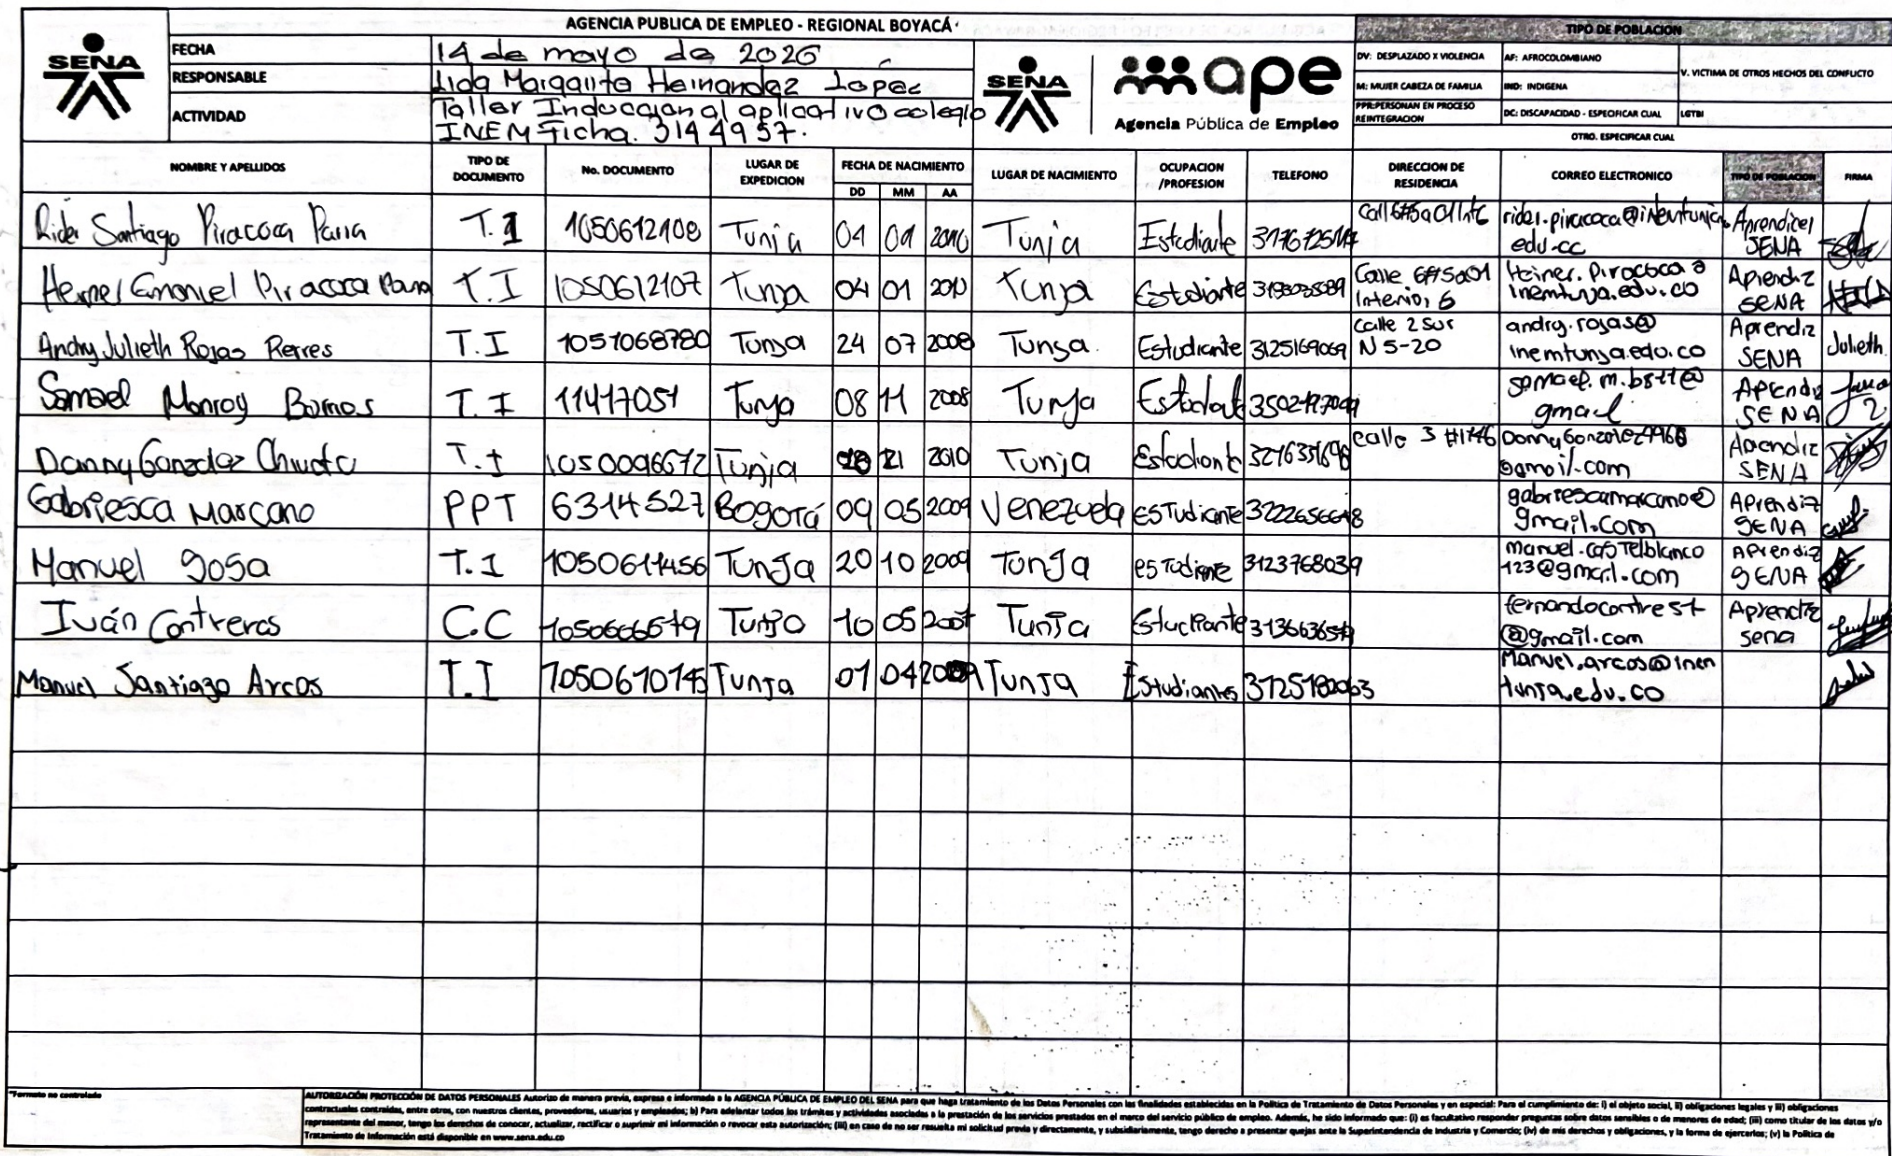 AGENCIA PUBLICA DE EMPLEO - REGIONAL BOYACÁ
TIPO DE POBLACION
SENA
FECHA 14 de mayo de 2026
RESPONSABLE Lida Margarita Hernandez Lopez
ACTIVIDAD Taller Induccion al aplicativo colegio
INEM Ficha. 3144957.
SENA
ape
Agencia Pública de Empleo
DV: DESPLAZADO X VIOLENCIA AF: AFROCOLOMBIANO V. VICTIMA DE OTROS HECHOS DEL CONFLICTO
M: MUJER CABEZA DE FAMILIA IND: INDIGENA
PPR:PERSONAN EN PROCESO REINTEGRACION DC: DISCAPACIDAD - ESPECIFICAR CUAL LGTBI
OTRO. ESPECIFICAR CUAL
NOMBRE Y APELLIDOS TIPO DE DOCUMENTO No. DOCUMENTO LUGAR DE EXPEDICION FECHA DE NACIMIENTO LUGAR DE NACIMIENTO OCUPACION /PROFESION TELEFONO DIRECCION DE RESIDENCIA CORREO ELECTRONICO TIPO DE POBLACION FIRMA
DD MM AA
Rider Santiago Piracoca Parra T.I 1050612108 Tunja 04 01 2010 Tunja Estudiante rider.piracoca@inemtunja. edu.cc SENA
Heiner Emanuel Piracoca Parra T.I 1050612107 Tunja 04 01 2010 Tunja Estudiante Calle 6#5a01 Interior 6 Heiner.Piracoca@ inemtunja.edu.co Aprendiz SENA
Andry Julieth Rojas Reyes T.I 1051068780 Tunja 24 07 2008 Tunja. Estudiante 3125169069 calle 2 Sur N 5-20 andry.rojas@ inemtunja.edu.co Aprendiz SENA Julieth.
Samael Monroy Barrios T.I 11417051 Tunja 08 11 2008 Tunja gmail Aprendiz SENA
Danny Gonzalez T.I Tunja 2010 Tunja Estudiante calle 3 @gmail.com Aprendiz SENA
Gabriesca Marcano PPT 6314527 Bogotá 09 05 2009 Venezuela estudiante gabriescamarcano@ gmail.com Aprendiz SENA
Manuel Sosa T.I 1050611456 Tunja 20 10 2009 Tunja estudiante 3123768039 manuel.castelblanco 123@gmail.com Aprendiz SENA
Iván Contreras C.C Tunja 10 05 2007 Tunja Estudiante @gmail.com Aprendiz sena
Manuel Santiago Arcos T.I 1050610145 Tunja 01 04 Tunja Estudiantes Manuel.arcos@inem tunja.edu.co
*Formato no controlado
AUTORIZACIÓN PROTECCIÓN DE DATOS PERSONALES Autorizo de manera previa, expresa e informada a la AGENCIA PÚBLICA DE EMPLEO DEL SENA para que haga tratamiento de los Datos Personales con las finalidades establecidas en la Política de Tratamiento de Datos Personales y en especial: Para el cumplimiento de: i) el objeto social, ii) obligaciones legales y iii) obligaciones
contractuales contraídas, entre otros, con nuestros clientes, proveedores, usuarios y empleados; b) Para adelantar todos los trámites y actividades asociadas a la prestación de los servicios prestados en el marco del servicio público de empleo. Además, he sido informado que: (i) es facultativo responder preguntas sobre datos sensibles o de menores de edad; (ii) como titular de los datos y/o
representante del menor, tengo los derechos de conocer, actualizar, rectificar o suprimir mi información o revocar esta autorización; (iii) en caso de no ser resuelta mi solicitud previa y directamente, y subsidiariamente, tengo derecho a presentar quejas ante la Superintendencia de Industria y Comercio; (iv) de mis derechos y obligaciones, y la forma de ejercerlos; (v) la Política de
Tratamiento de Información está disponible en www.sena.edu.co